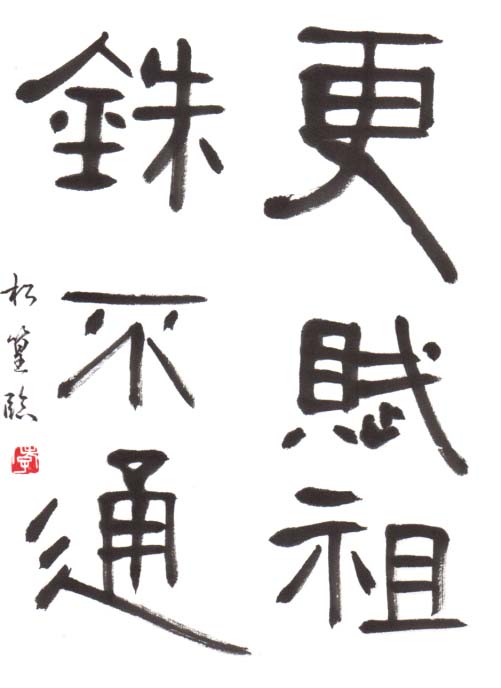 更賦祖
銖不通
松篁臨